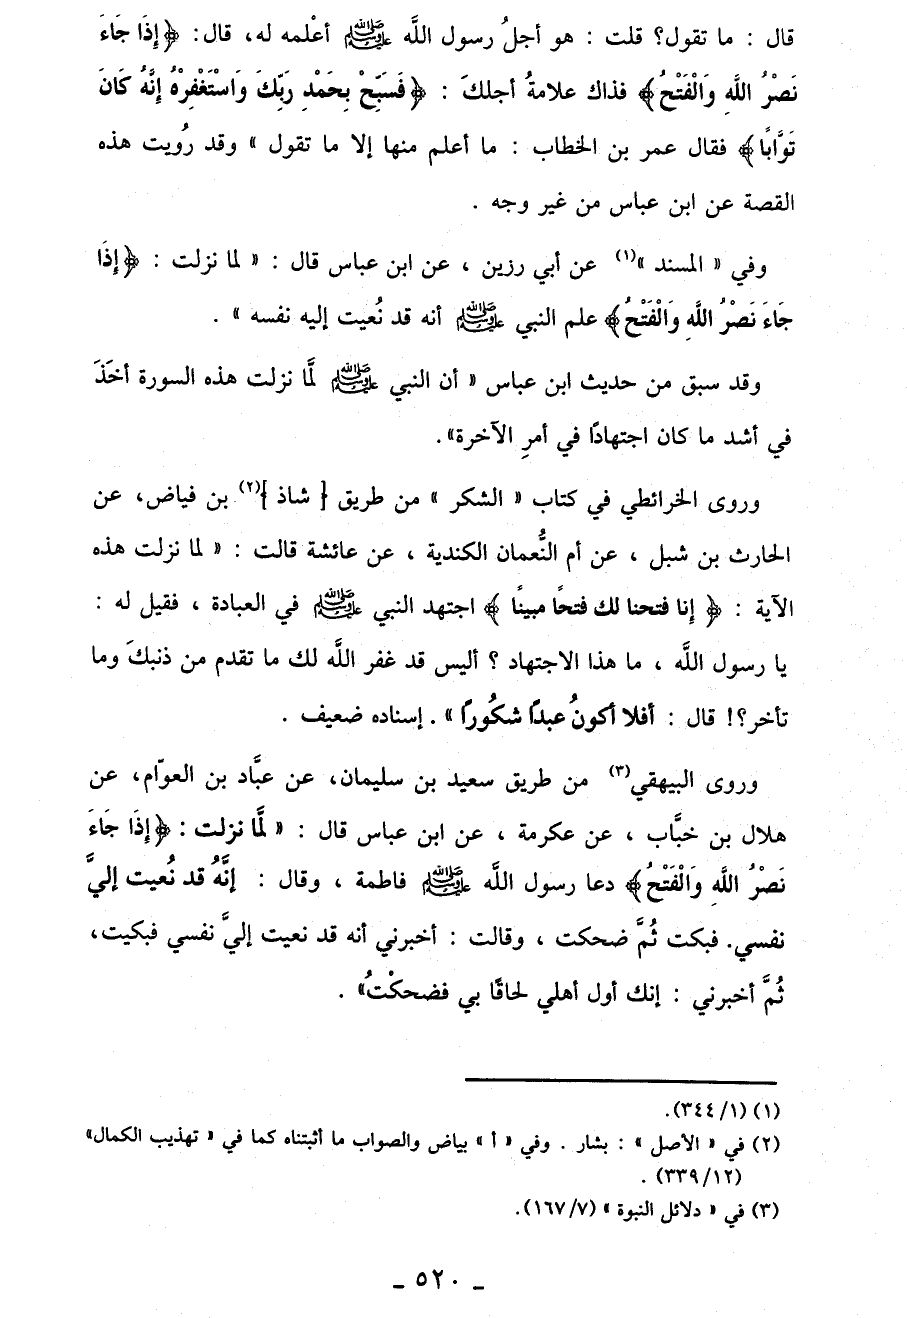 قال : ما تقول؟ قلت : هو أجلُ رسول اللَّه ﷺ أعْلمه له، قال: ﴿إِذَا جَاءَ
نَصْرُ اللَّهِ وَالْفَتْحُ﴾ فذاك علامةُ أجلكَ : ﴿فَسَبِّحْ بِحَمْدِ رَبِّكَ وَاسْتَغْفِرْهُ إِنَّهُ كَانَ
تَوَّابًا﴾ فقال عمر بن الخطاب : ما أعلم منها إلا ما تقول » وقد رُويت هذه
القصة عن ابن عباس من غير وجه .
وفي « المسند »(١) عن أبي رزين ، عن ابن عباس قال : « لما نزلت : ﴿إِذَا
جَاءَ نَصْرُ اللَّهِ وَالْفَتْحُ﴾ علم النبي ﷺ أنه قد نُعيت إليه نفسه » .
وقد سبق من حديث ابن عباس « أن النبي ﷺ لَّا نزلت هذه السورة أخَذَ
في أشد ما كان اجتهادًا في أمرِ الآخرة».
وروى الخرائطي في كتاب « الشكر » من طريق [ شاذ ](٢) بن فياض، عن
الحارث بن شبل ، عن أم النُّعمان الكندية ، عن عائشة قالت : « لما نزلت هذه
الآية : ﴿ إنا فتحنا لك فتحًا مبينًا ﴾ اجتهد النبي ﷺ في العبادة ، فقيل له :
يا رسول اللَّه ، ما هذا الاجتهاد ؟ أليس قد غفر اللَّه لك ما تقدم من ذنبكَ وما
تأخر؟! قال : أفلا أكونُ عبدًا شكُورًا » . إسناده ضعيف .
وروى البيهقي(٣) من طريق سعيد بن سليمان، عن عبَّاد بن العوّام، عن
هلال بن خبَّاب ، عن عكرمة ، عن ابن عباس قال : « لَّما نزلت : ﴿إِذَا جَاءَ
نَصْرُ اللَّهِ وَالْفَتْحُ﴾ دعا رسول اللَّه ﷺ فاطمة ، وقال : إنَّهُ قد نُعيت إليَّ
نفسي. فبكت ثُمَّ ضحكت ، وقالت : أخبرني أنه قد نعيت إليَّ نفسي فبكيت،
ثُمَّ أخبرني : إنك أول أهلي لحاقًا بي فضحكْتُ» .
(١) (١/ ٣٤٤).
(٢) في « الأصل » : بشار . وفي « أ » بياض والصواب ما أثبتناه كما في « تهذيب الكمال»
(١٢/ ٣٣٩) .
(٣) في « دلائل النبوة » (٧/ ١٦٧).
ـ ٥٢٠ ـ